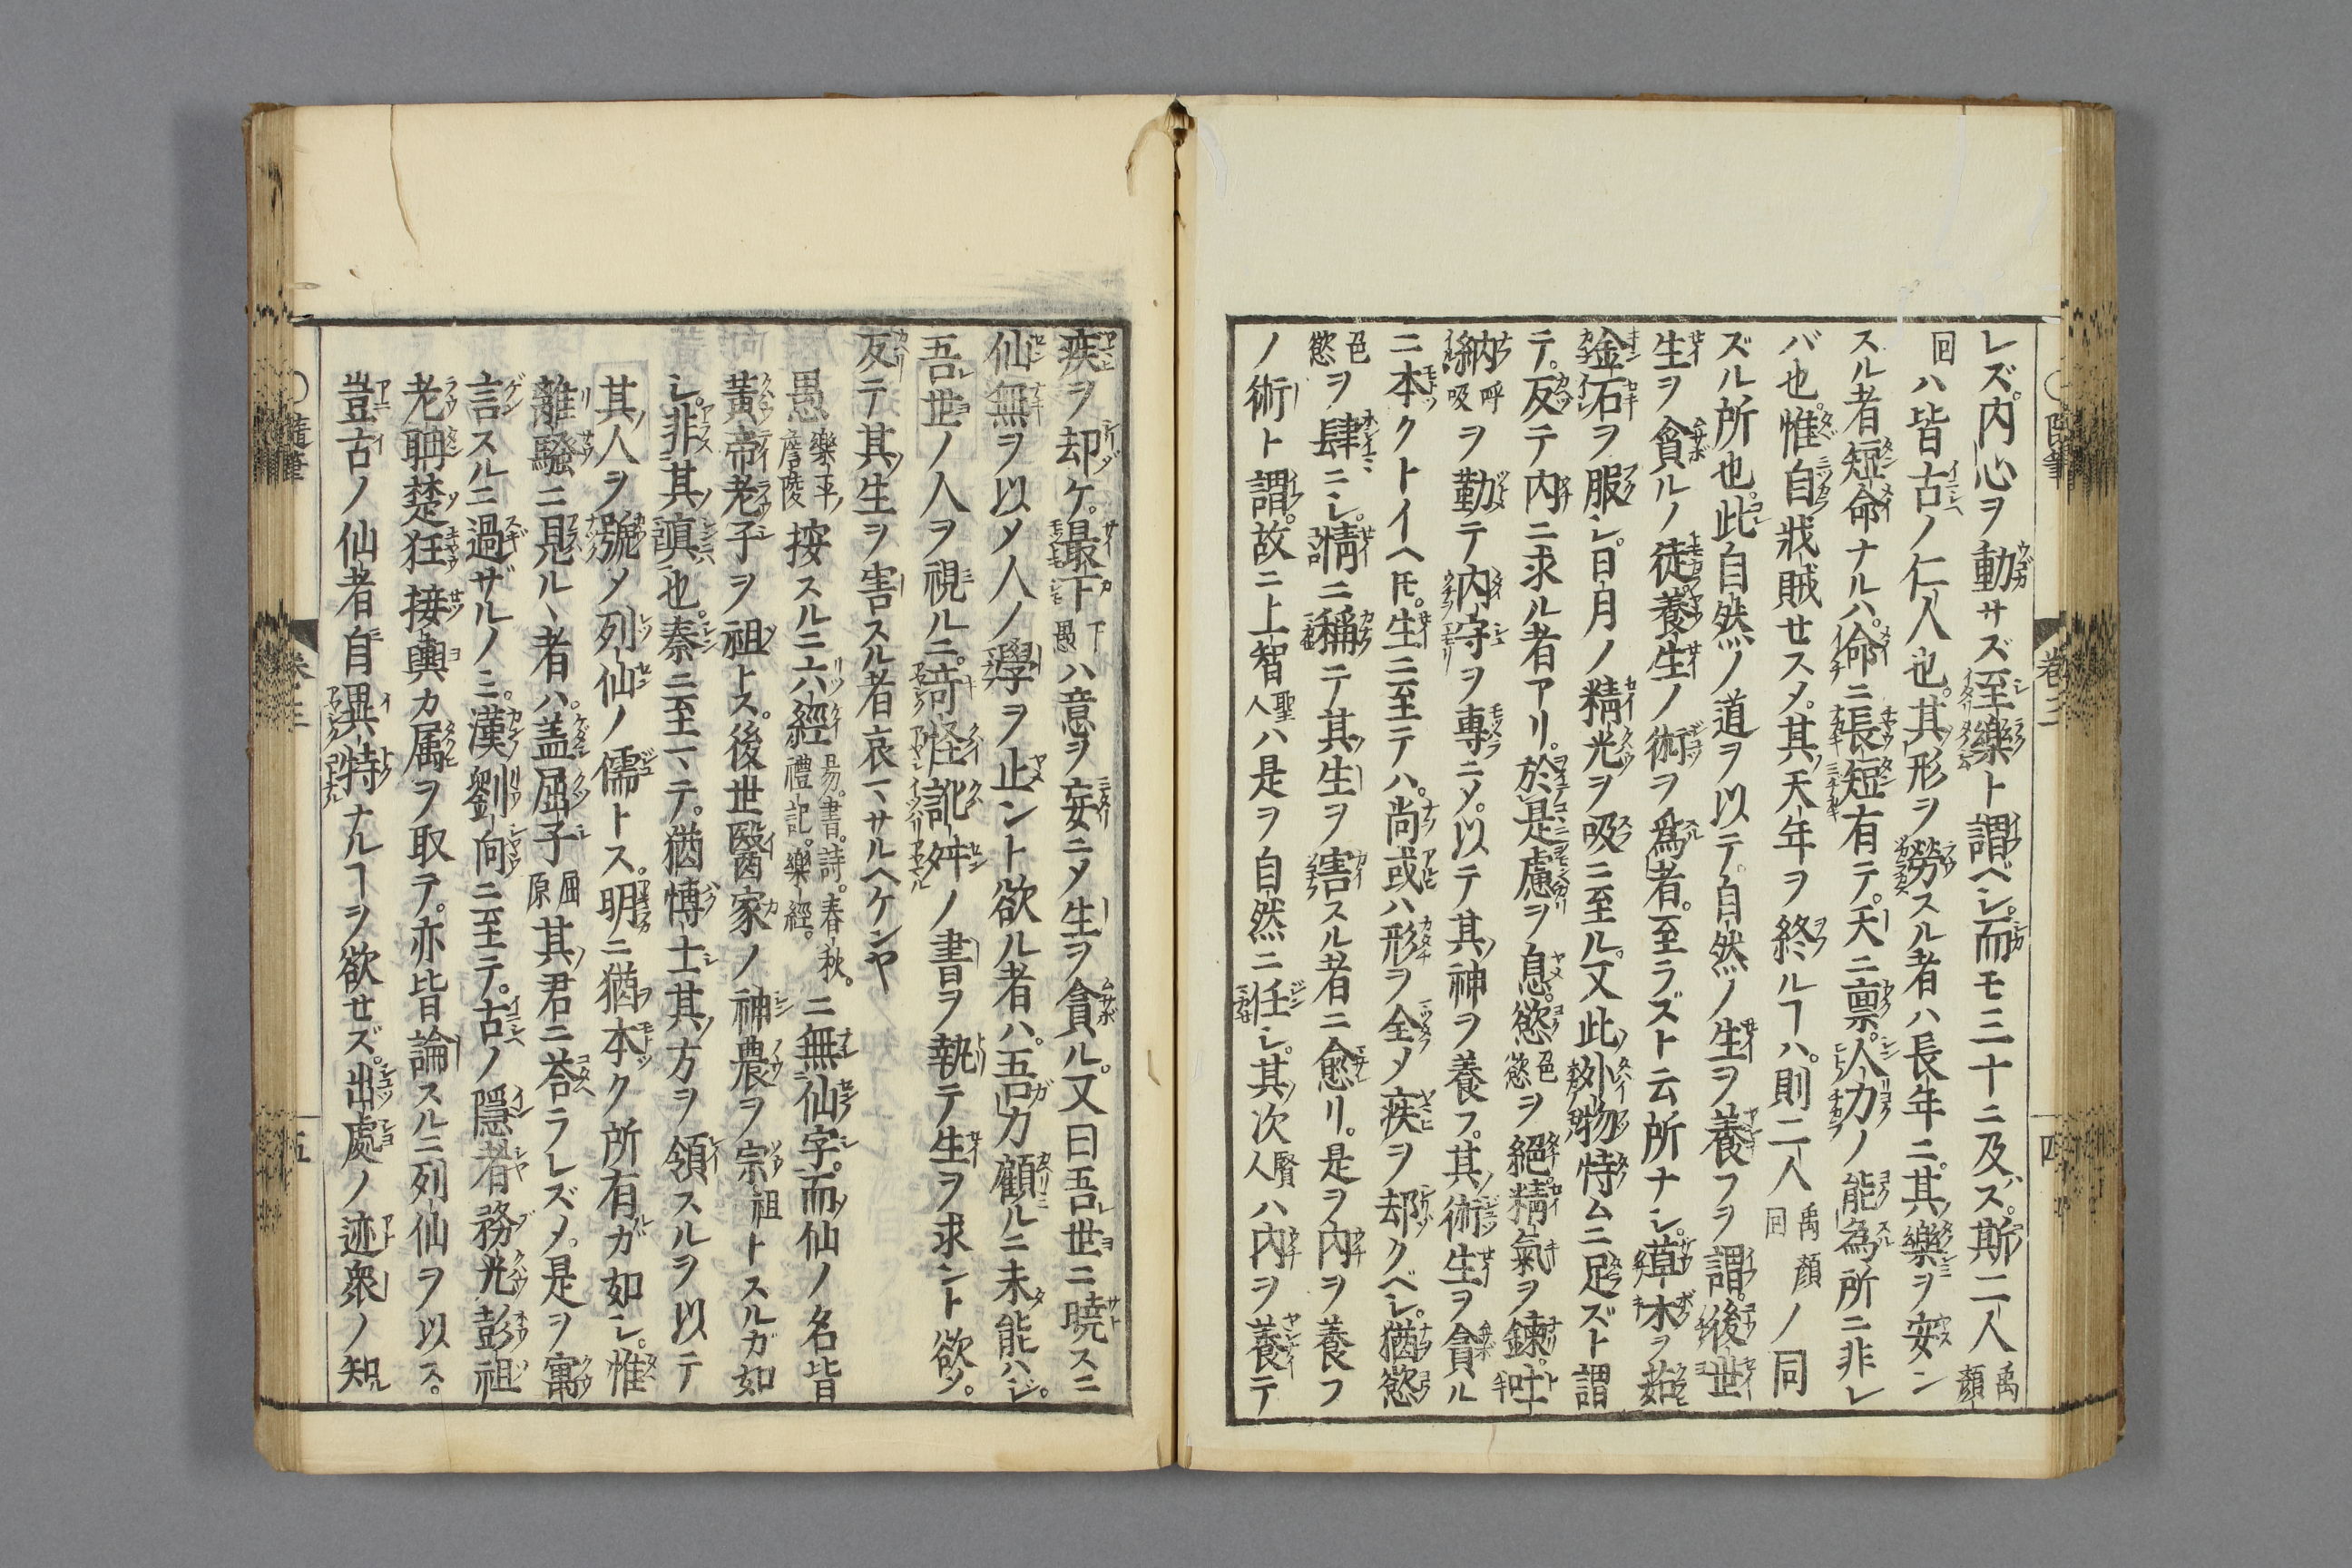 レズ。内心ヲ動サズ至樂ト謂ベシ。而モ三十ニ及バス。斯二人禹顏
回ハ皆古ノ仁人也。其形ヲ勞スル者ハ長年ニ。其樂ヲ安ン
スル者短命ナルハ。命ニ長短有テ。天ニ禀。人力ノ能為所ニ非レ
バ也。惟自戕賊せスメ。其天年ヲ終ルヿハ。則二人禹顏回ノ同
ズル所也。此自然ノ道ヲ以テ自然ノ生ヲ養フヲ謂。後世
生ヲ貪ルノ徒養生ノ術ヲ爲者。至ラズト云所ナシ。草木ヲ茹
金石ヲ服シ。日月ノ精光ヲ吸ニ至ル。又此外物恃ムニ足ズト謂
テ。反テ内ニ求ル者アリ。於是慮ヲ息。慾色慾ヲ絕。精氣ヲ鍊。吐
納呼吸ヲ勤テ内守ヲ專ニメ。以テ其神ヲ養フ。其術生ヲ貪ル
ニ本クトイヘ𪜈。生ニ至テハ。尚或ハ形ヲ全メ疾ヲ却クベシ。猶慾
色慾ヲ肆ニシ。情ニ稱テ其生ヲ害スル者ニ愈リ。是ヲ内ヲ養フ
ノ術ト謂。故ニ上智聖人ハ是ヲ自然ニ任シ。其次賢人ハ内ヲ養テ
卷三
四
疾ヲ却ケ。最下下愚ハ意ヲ妄ニメ生ヲ貪ル。又曰吾世ニ曉スニ
仙無ヲ以メ人ノ學ヲ止ント欲ル者ハ。吾カ力顧ルニ未能ハジ。
吾世ノ人ヲ視ルニ。奇怪訛舛ノ書ヲ執テ生ヲ求ント欲ノ。
反テ其生ヲ害スル者哀マサルヘケンヤ
愚樂平詹陵按スルニ六經易。書。詩。春秋。禮記。樂經。ニ無仙字。而仙ノ名皆
黃帝老子ヲ祖トス。後世醫家ノ神農ヲ宗祖トスルガ如
シ。非其眞也。秦ニ至マテ。猶博士其方ヲ領スルヲ以テ
其人ヲ號メ列仙ノ儒トス。明ニ猶本ク所有ガ如シ。惟
離騷ニ見ルヽ者ハ。盖屈子屈原其君ニ荅ラレズメ。是ヲ寓
言スルニ過ザルノミ。漢劉向ニ至テ。古ノ隱者務光彭祖
老聃楚狂接輿カ属ヲ取テ。亦皆論スルニ列仙ヲ以ス。
豈古ノ仙者自異特ナルヿヲ欲せズ。出處ノ迹衆ノ知
〇隨筆
卷三
五